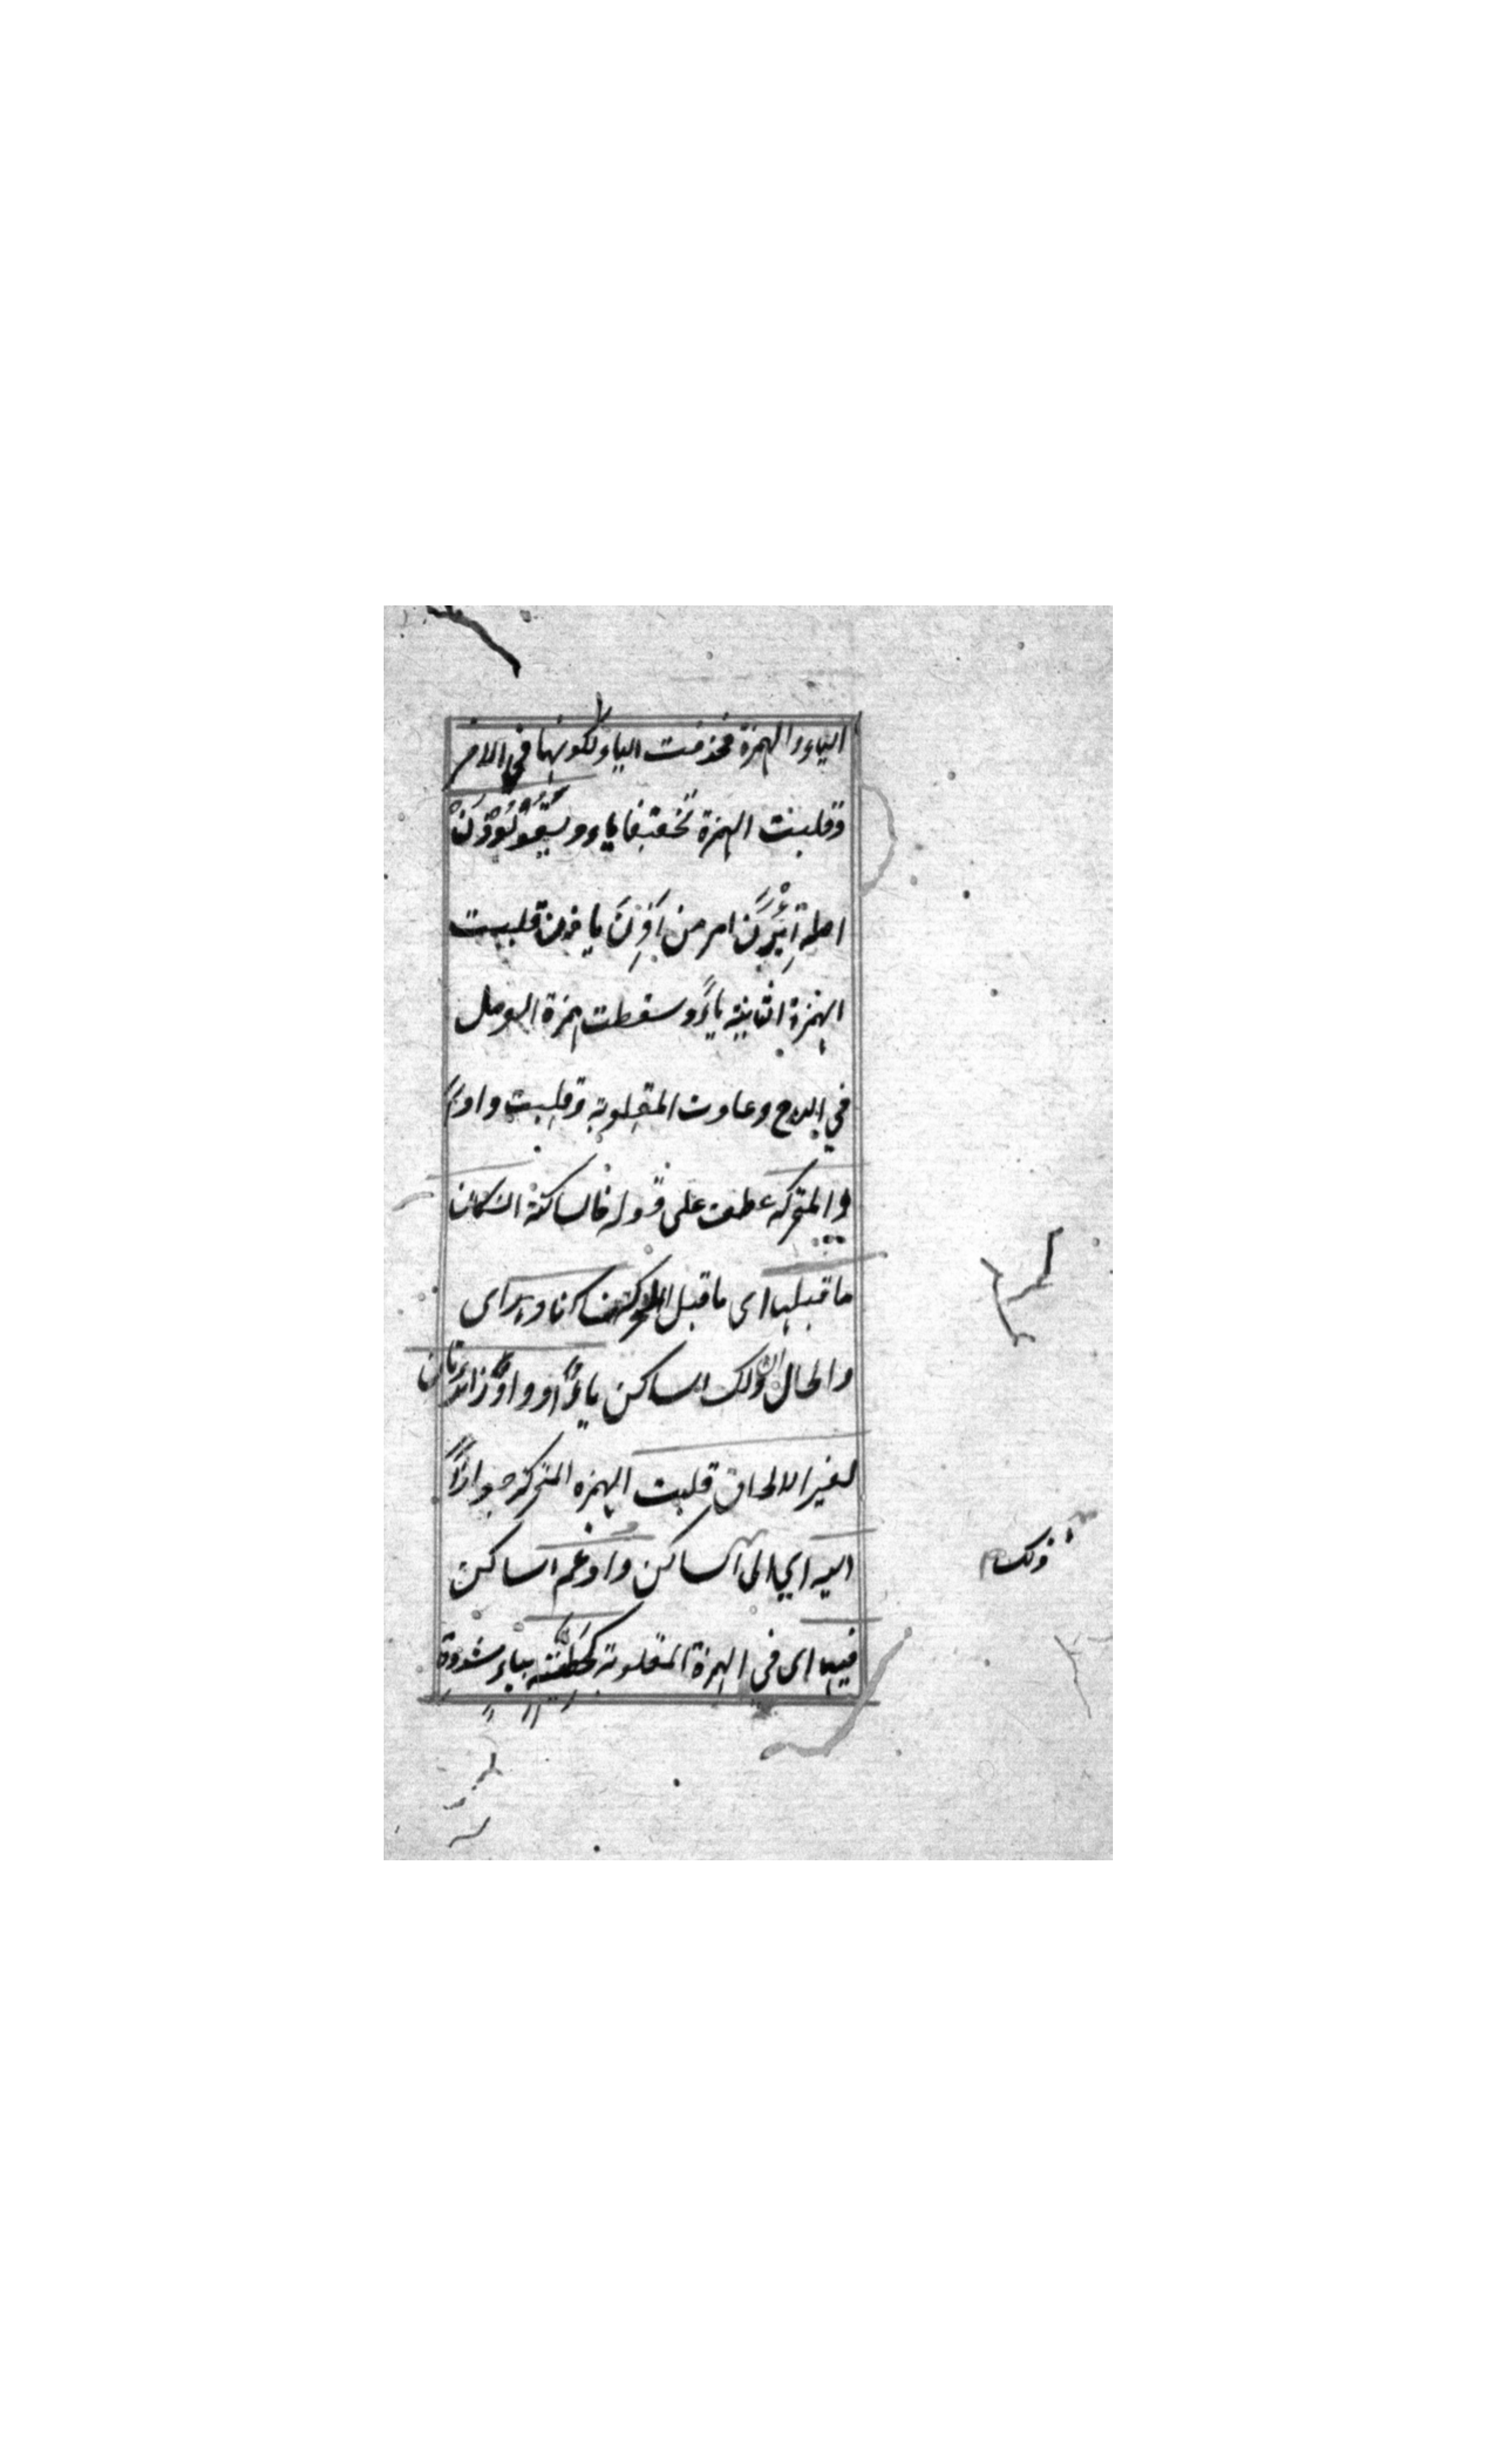 الياء والهمزة فحذفت الياء لكونها في الاخر
وقلبت الهمزة تخفيفا ياء ويَقُوْلُوْذَنْ
اصله اِئْذَنْ امر من اَذِنَ ياذن قلبت
الهمزة الثانية ياءً وسقطت همزة الوصل
في الدرج وعادت المقلوبة وقلبت واوًا
والمتحركه عطف على قوله فالساكنة ان كان
ما قبلها اى ما قبل المتحركة ساكنا وهو اى
والحال ان ذلك الساكن ياءً او واوٌ زائدتان
لغير الالحاق قلبت الهمزه المتحركة جوازًا
اليه اي الى الساكن وادغم الساكن
فيها اى في الهمزة المقلوبة كخَطِيَّته بياءٍ مشددة
ذلك